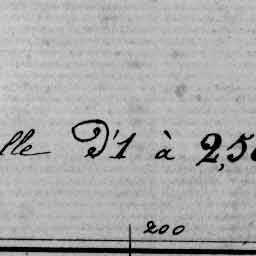 lle D'1 à 2,5
200